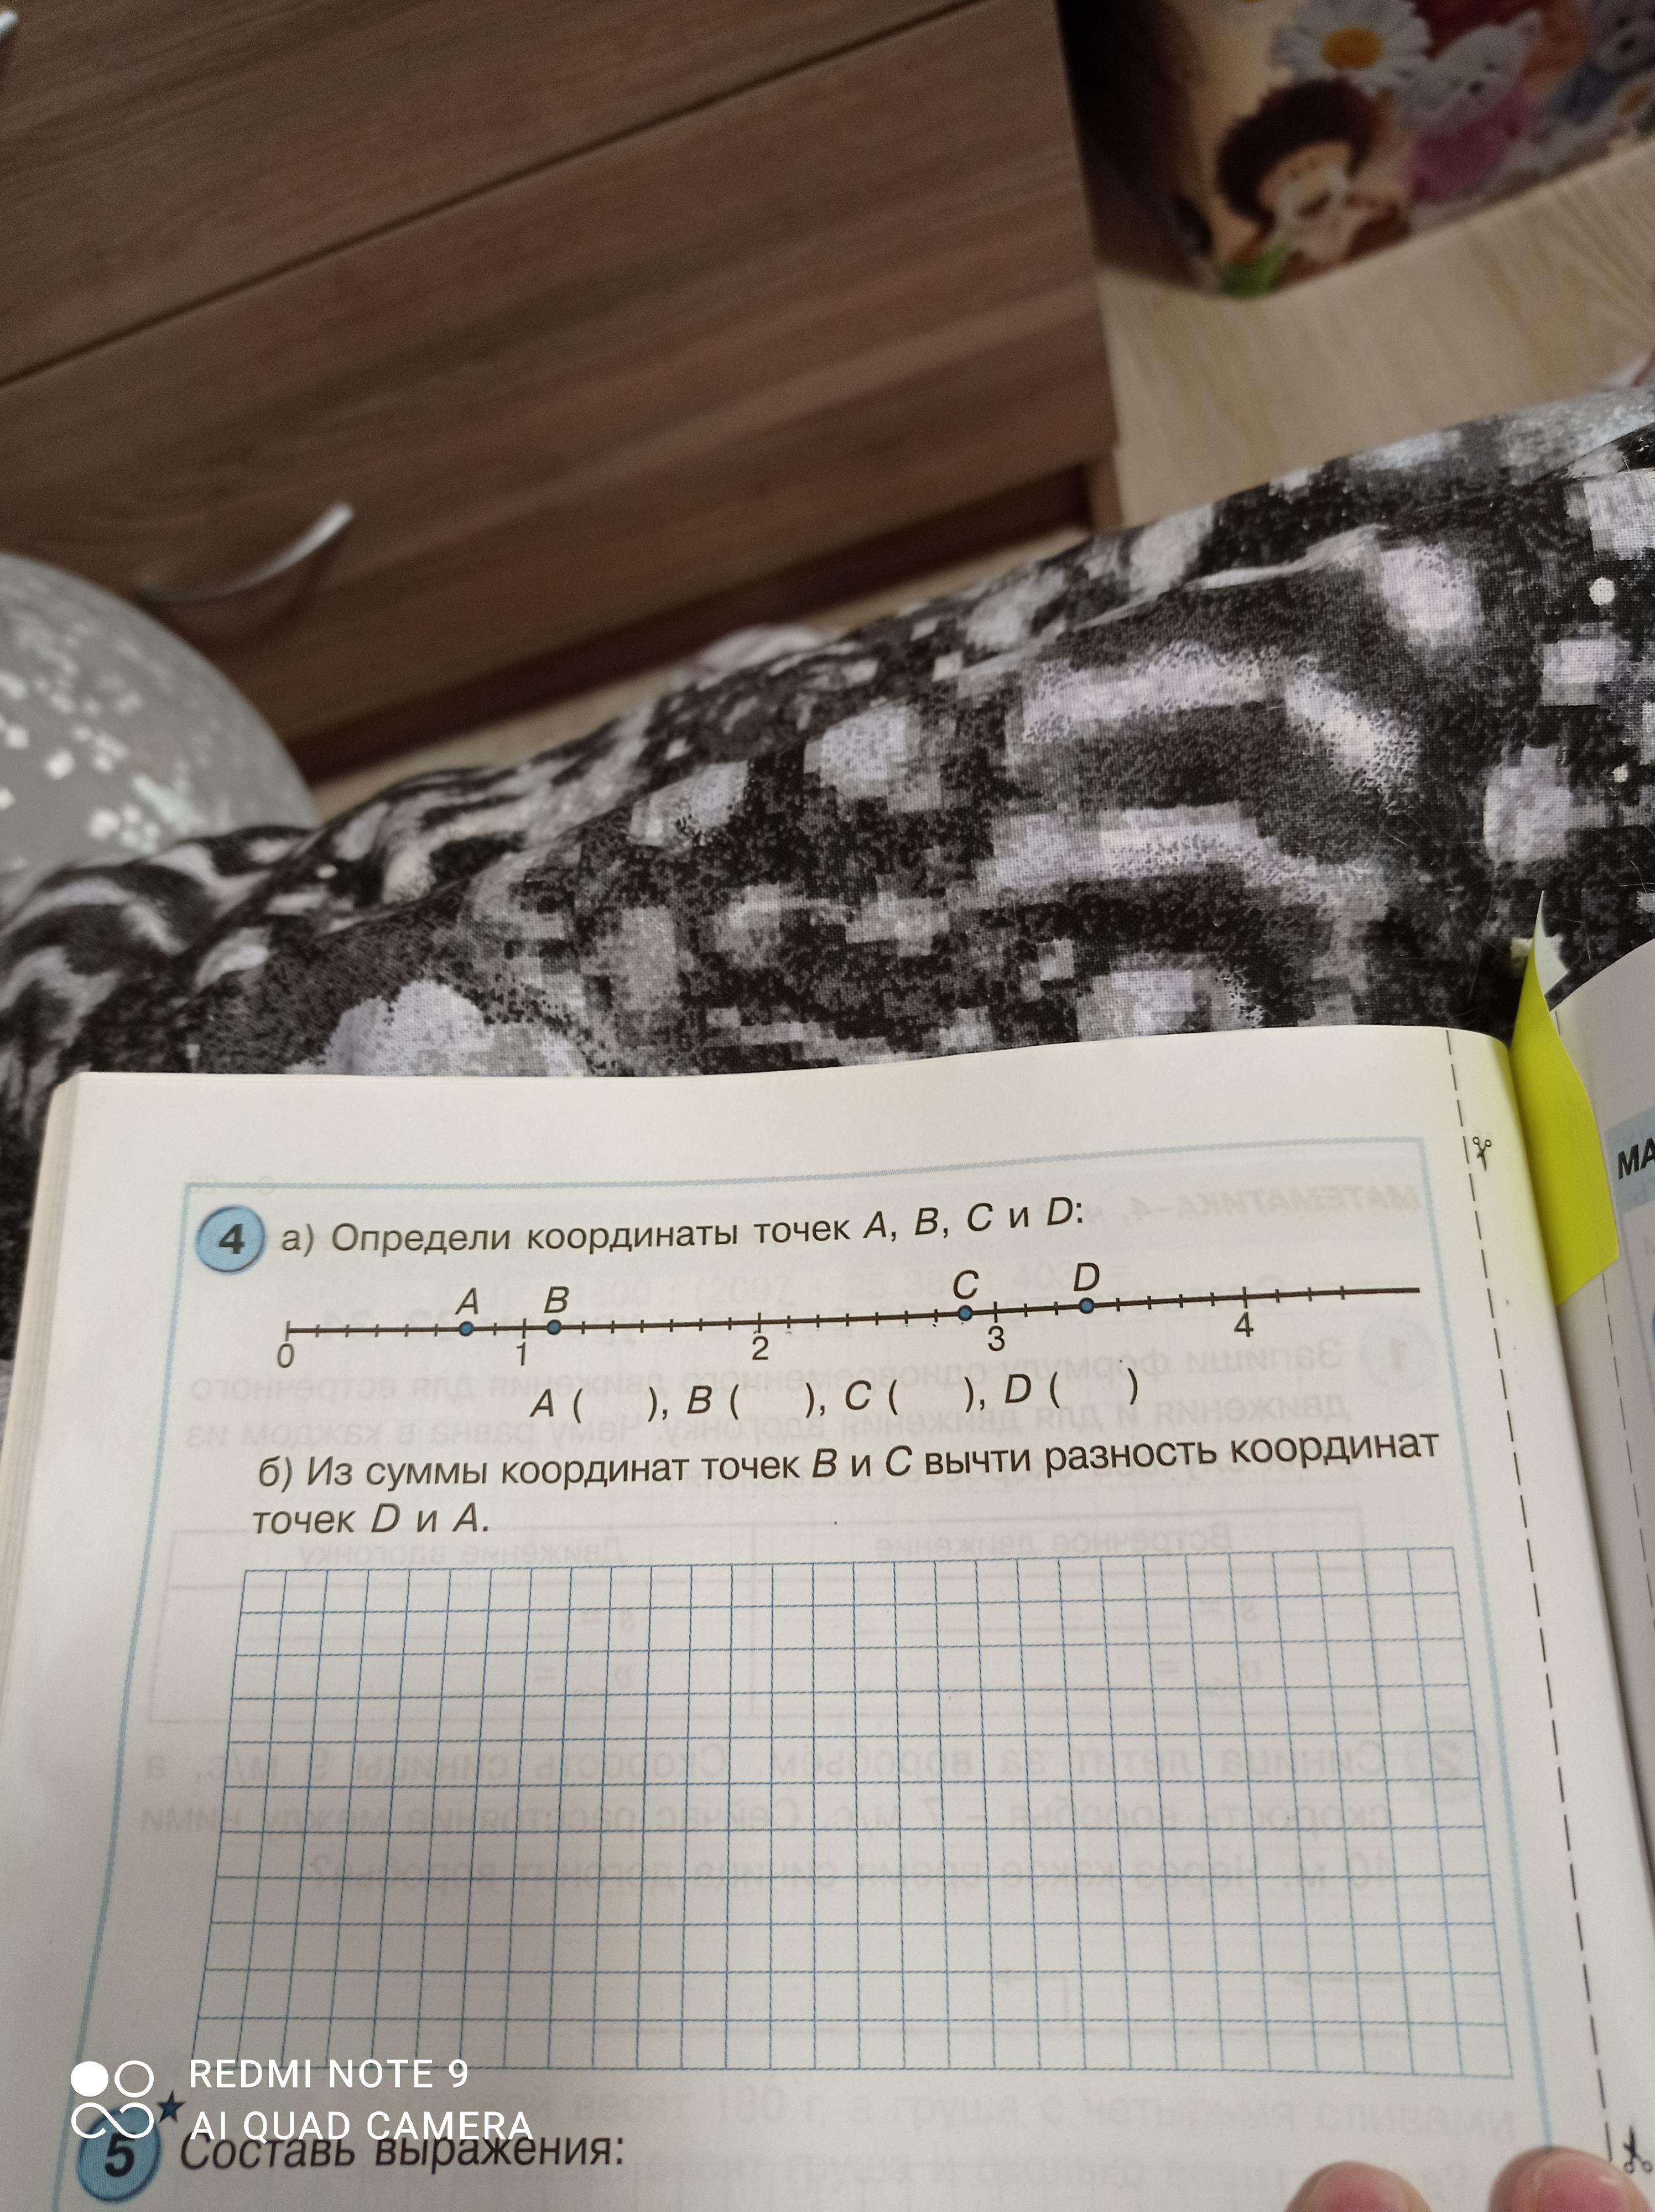 МА
4 а) Определи координаты точек A, B, C и D:
A B C D
0 1 2 3 4
A ( ), B ( ), C ( ), D ( )
б) Из суммы координат точек B и C вычти разность координат
точек D и A.
5 Составь выражения:
REDMI NOTE 9
AI QUAD CAMERA